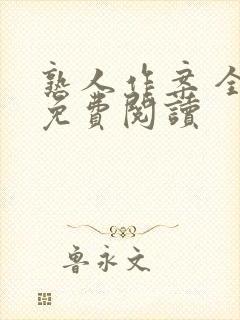 熟人作案全
免費閱讀
魯永文